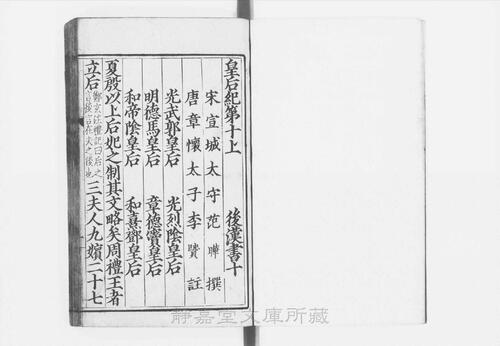 皇后紀第十上　後漢書十
宋宣城太守范曄撰
唐章懷太子李賢註
光武郭皇后　光烈陰皇后
明德馬皇后　章德竇皇后
和帝陰皇后　和熹鄧皇后
夏殷以上后妃之制其文略矣周禮王者
立后鄭玄注禮記曰后之言後言在夫之後也三夫人九嬪二十七
静嘉堂文庫所蔵